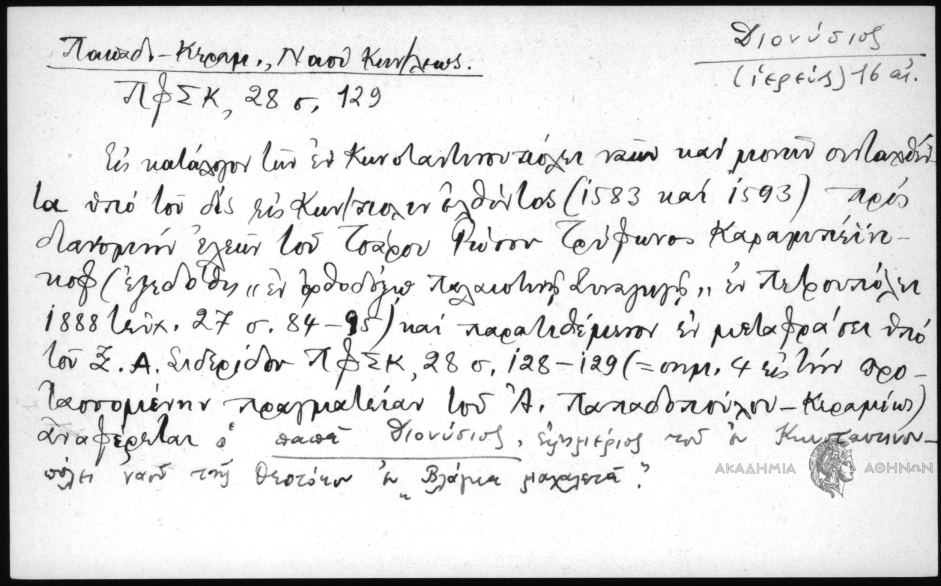 Διονύσιος
(ἱερεύς) 16 αἰ.
Παπαδ.-Κεραμ., Ναοὶ Κων/λεως.
ΠΦΣΚ, 28 σ. 129
Εἰς κατάλογον τῶν ἐν Κωνσταντινουπόλει ναῶν καὶ μονῶν συνταχθέν-
τα ὑπὸ τοῦ δὶς εἰς Κων/πολιν ἐλθόντος (1583 καὶ 1593) πρὸς
διανομὴν ἐλεῶν τοῦ Τσάρου Ρώσου Τρύφωνος Καραμπεΐνι-
κοφ (ἐξεδόθη "ἐν ὀρθοδόξῳ Παλαιστινῇ Συναγωγῇ" ἐν Πετρουπόλει
1888 τεῦχ. 27 σ. 84-95) καὶ παρατιθέμενον ἐν μεταφράσει ὑπὸ
τοῦ Ξ. Α. Σιδερίδου ΠΦΣΚ, 28 σ. 128-129 (= σημ. 4 εἰς τὴν προ-
τασσομένην πραγματείαν τοῦ Ἀ. Παπαδοπούλου-Κεραμέως)
ἀναφέρεται ὁ παπᾶ Διονύσιος, ἐφημέριος τοῦ ἐν Κωνσταντινου-
πόλει ναοῦ τῆς Θεοτόκου ἐν "Βλάγκα μαχαλετά".
ΑΚΑΔΗΜΙΑ ΑΘΗΝΩΝ